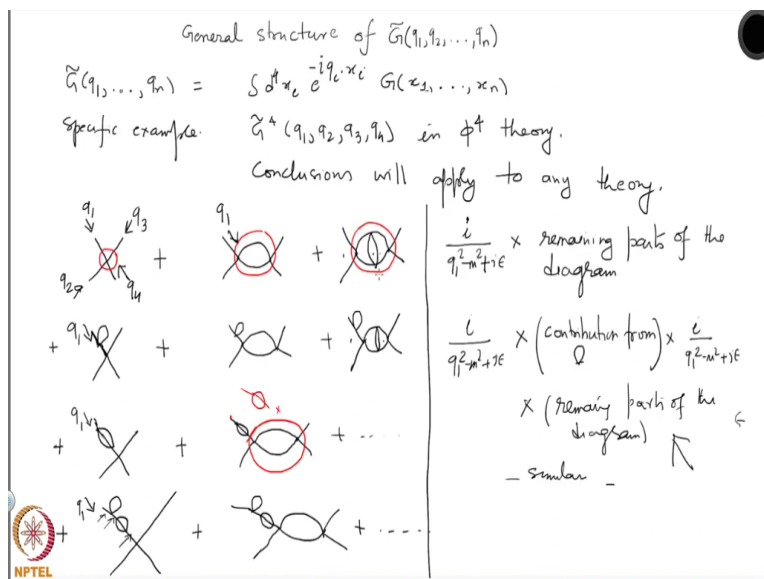 General structure of G̃(q₁,q₂,...,qₙ)
G̃(q₁,...,qₙ) = ∫d⁴xᵢ e^{-iqᵢ·xᵢ} G(x₁,...,xₙ)
Specific example. G̃⁴(q₁,q₂,q₃,q₄) in φ⁴ theory.
Conclusions will apply to any theory.
q₁ q₃ q₂ q₄ + q₁ +
i/(q₁²-m²+iε) × remaining parts of the diagram
+ q₁ + +
i/(q₁²-m²+iε) × (contribution from) × i/(q₁²-m²+iε)
× (remaing parts of the diagram)
+ q₁ + + ....
- similar -
+ q₁ + + .....
NPTEL